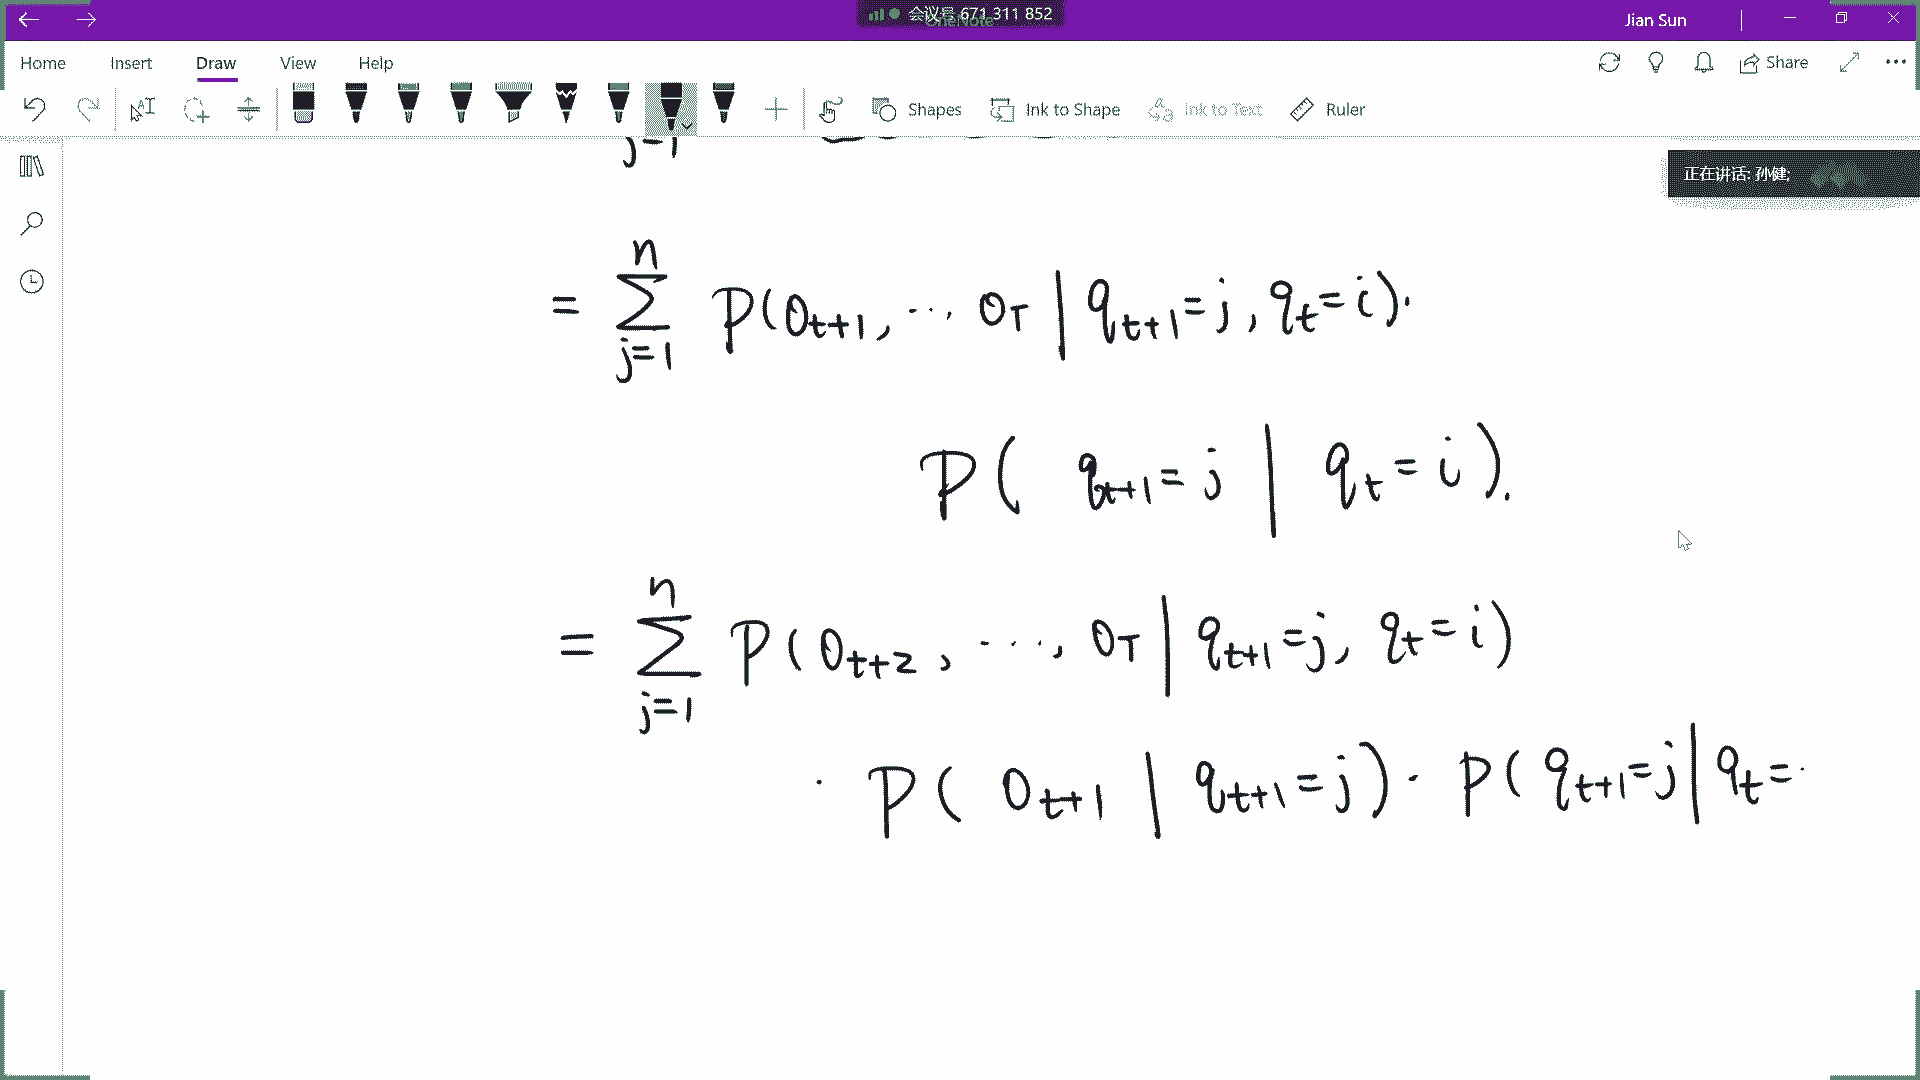 会议号 671 311 852
Jian Sun
Home Insert Draw View Help
Share
Shapes Ink to Shape Ink to Text Ruler
正在讲话: 孙健;
j=1
n
= ∑ P(O_{t+1}, ... O_T | q_{t+1}=j, q_t=i).
j=1
P( q_{t+1}=j | q_t=i).
n
= ∑ P(O_{t+2}, ..., O_T | q_{t+1}=j, q_t=i)
j=1
· P( O_{t+1} | q_{t+1}=j) · P( q_{t+1}=j | q_t=